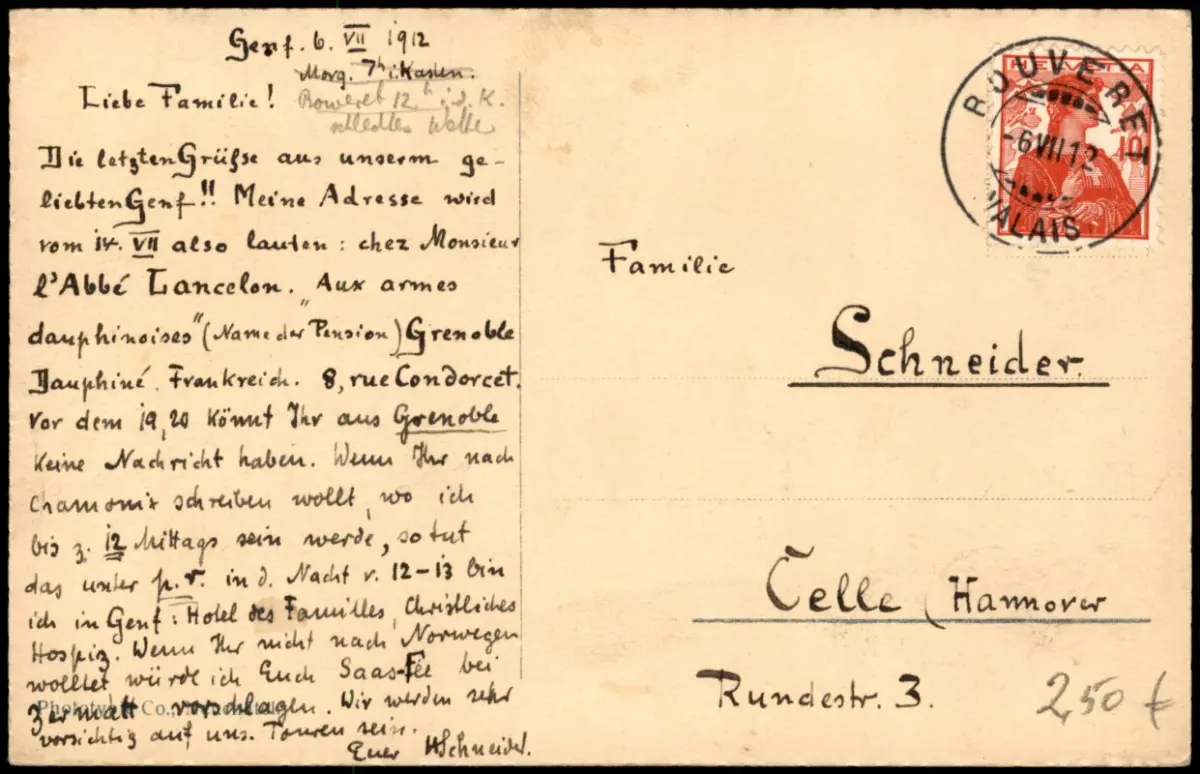 Genf. 6. VII 1912
Morg. 7h i. Kasten.
Boweret 12h i. d. K.
schlechtes Wetter
Liebe Familie!
Die letzten Grüße aus unserm ge-
liebten Genf!! Meine Adresse wird
vom 14. VII also lauten: chez Monsieur
l'Abbé Lancelon. "Aux armes
dauphinoises" (Name der Pension) Grenoble
Dauphiné. Frankreich. 8, rue Condorcet.
Vor dem 19, 20 könnt Ihr aus Grenoble
keine Nachricht haben. Wenn Ihr nach
Chamonix schreiben wollt, wo ich
bis z. 12 Mittags sein werde, so tut
das unter p. r. in d. Nacht v. 12-13 bin
ich in Genf: Hotel des Familles, Christliches
Hospiz. Wenn Ihr nicht nach Norwegen
wolltet würde ich Euch Saas-Fee bei
Zermatt vorschlagen. Wir werden sehr
vorsichtig auf uns. Touren sein.
Euer HSchneider.
Phototyp Co.,
HELVETIA
10
BOUVERET
-6 VII 12
VALAIS
Familie
Schneider.
Celle (Hannover
Rundestr. 3.
2,50 €